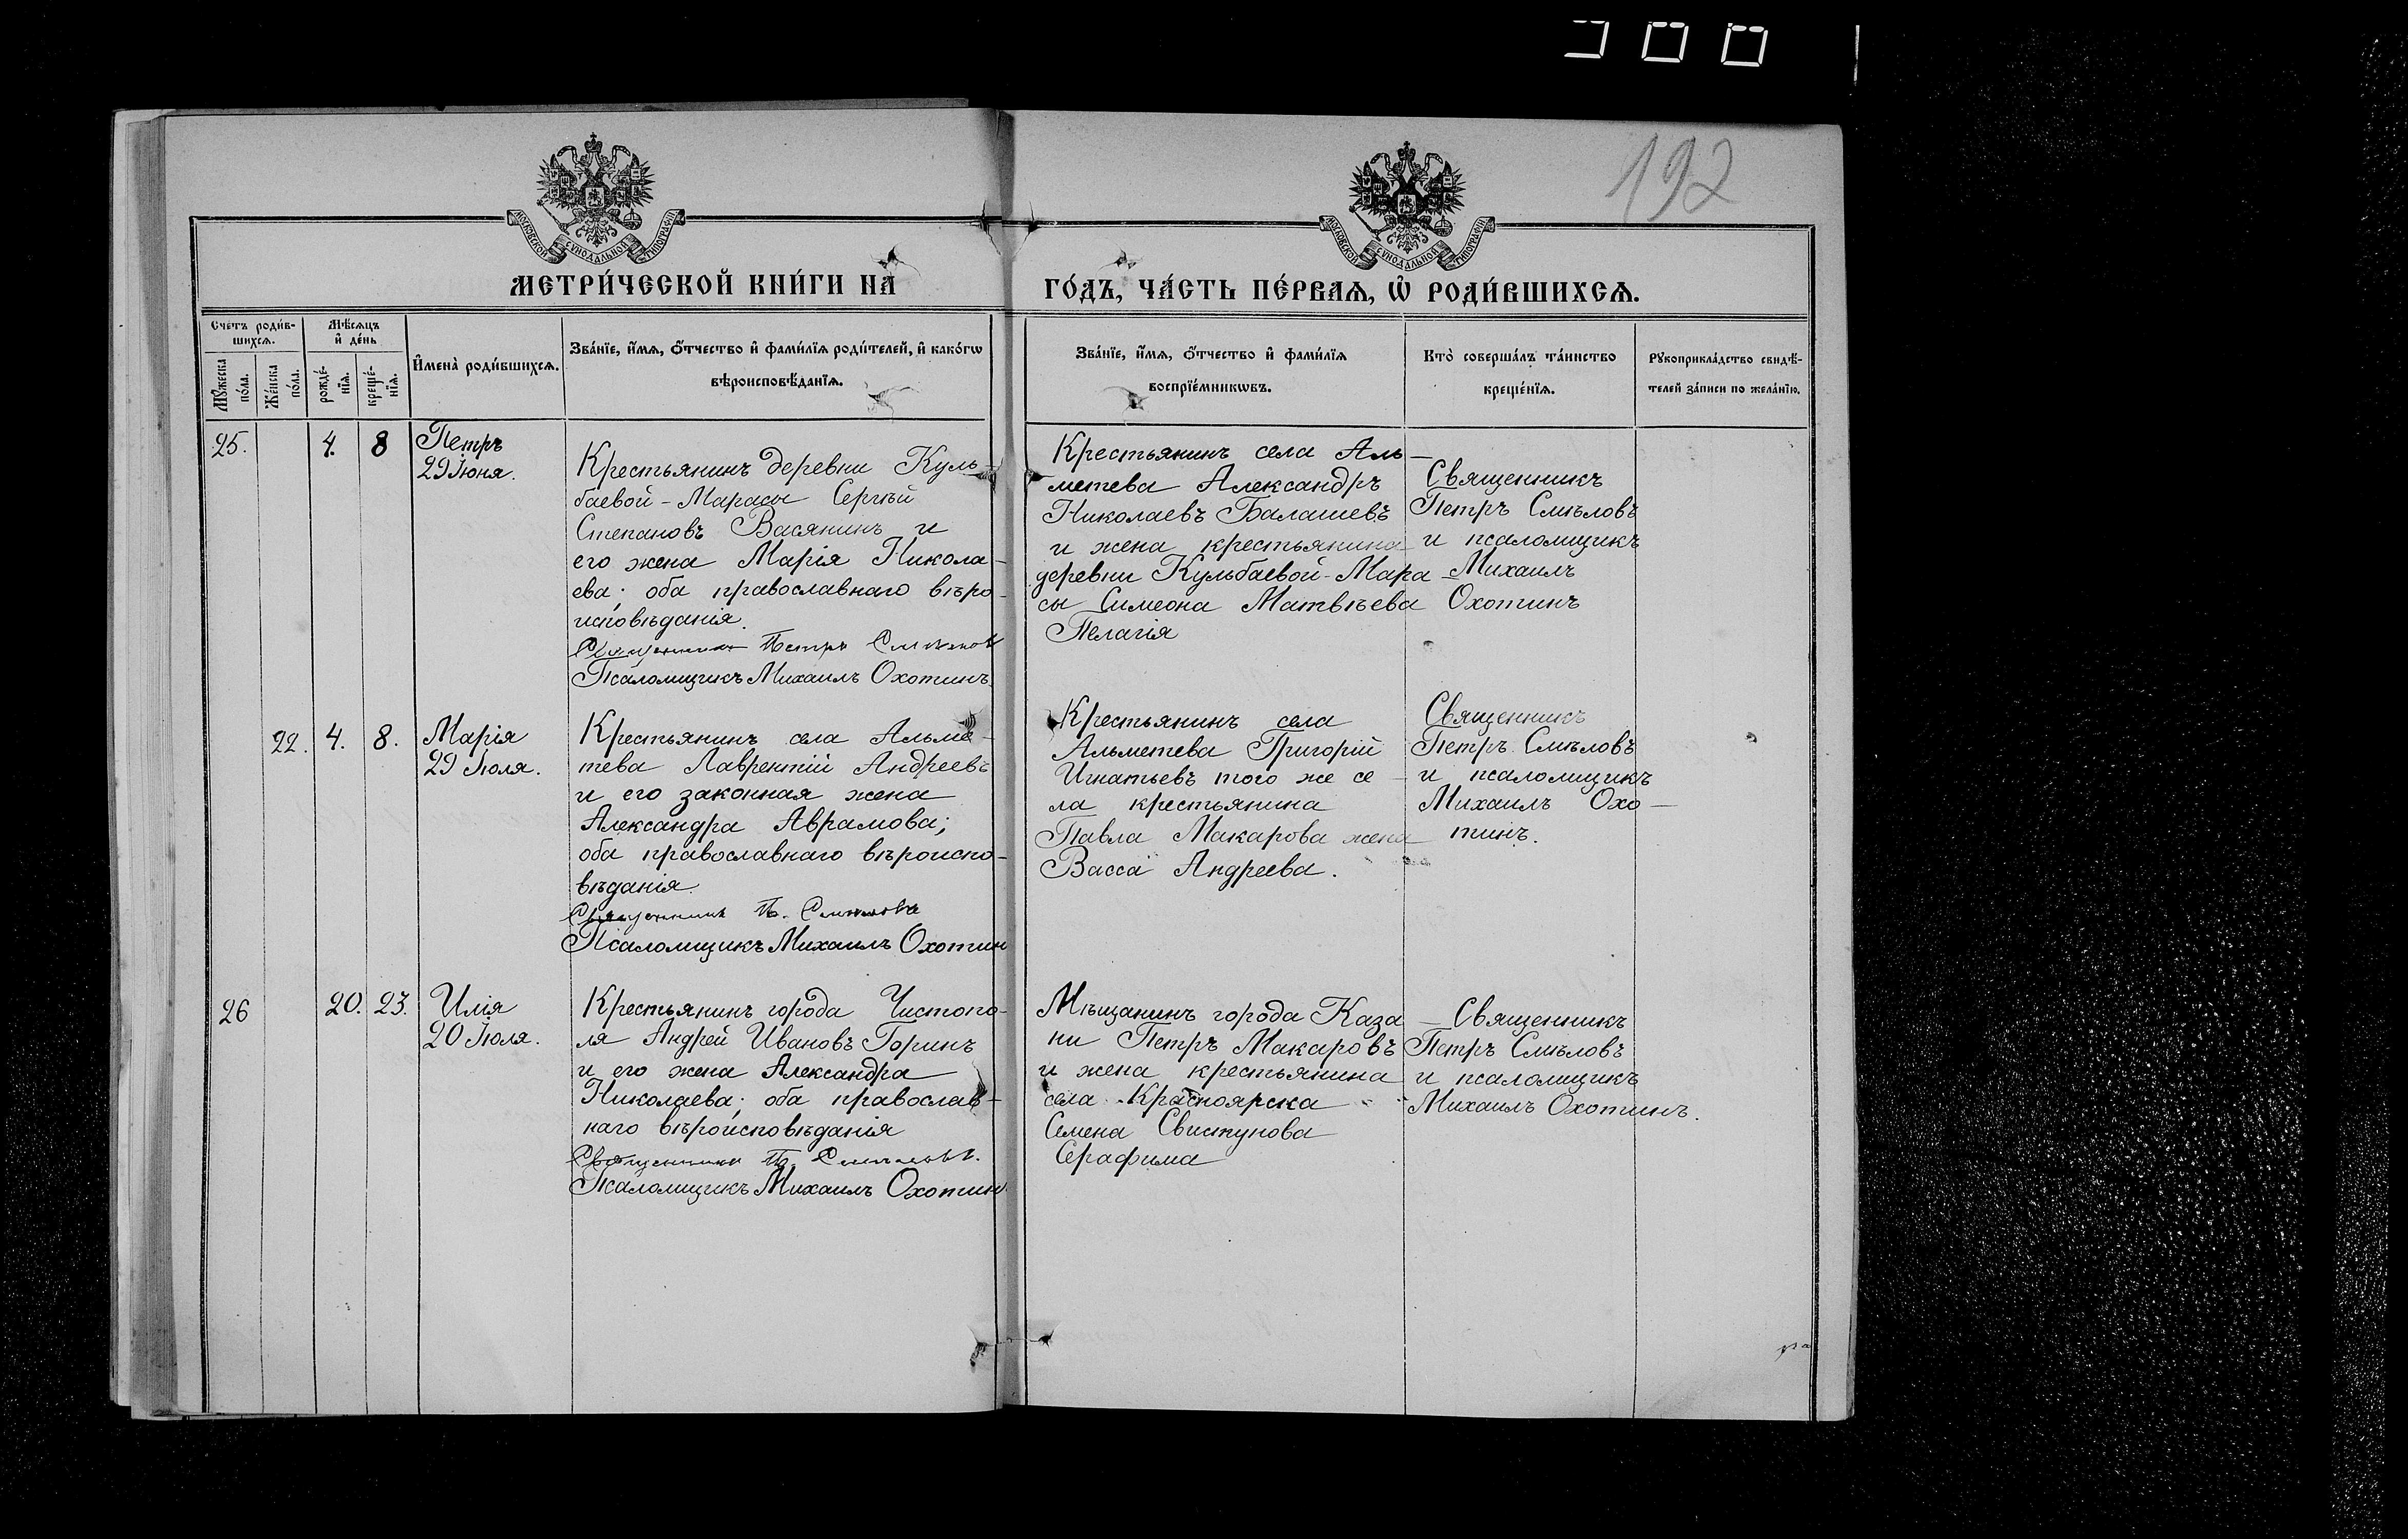 192
МОСКОВСКОЙ СѴНОДАЛЬНОЙ ТИПОГРАФІИ
МОСКОВСКОЙ СѴНОДАЛЬНОЙ ТИПОГРАФІИ
МЕТРИ́ЧЕСКОЙ КНИ́ГИ НА
ГО́ДЪ, ЧА́СТЬ ПЕ́РВАѦ, Ѽ РОДИ́ВШИХСѦ.
Сче́тъ роди́в-
шихсѧ.
Мѣ́сѧцъ
и҆ де́нь
Мꙋ́жеска
по́ла.
Же́нска
по́ла.
рожде́-
нїѧ.
креще́-
нїѧ.
И҆мена̀ роди́вшихсѧ.
Зва́нїе, и҆́мѧ, ѻ҆́тчество и҆ фами́лїѧ роди́телей, и҆ како́гѡ
вѣроисповѣ́данїѧ.
Зва́нїе, и҆́мѧ, ѻ҆́тчество и҆ фами́лїѧ
воспрїе́мникѡвъ.
Кто̀ соверша́лъ та́инство
креще́нїѧ.
Рꙋкоприкла́дство свидѣ́-
телей за́писи по жела́нїю.
25.
4.
8
Петръ
29 Іюня.
Крестьянинъ деревни Куль-
баевой-Марасы Сергѣй
Степановъ Васянинъ и
его жена Марія Никола-
ева; оба православнаго вѣро-
исповѣданія.
Священникъ Петръ Смѣловъ
Псаломщикъ Михаилъ Охотинъ.
Крестьянинъ села Аль-
метева Александръ
Николаевъ Балашевъ
и жена крестьянина
деревни Кульбаевой-Мара-
сы Симеона Матвѣева
Пелагія
Священникъ
Петръ Смѣловъ
и псаломщикъ
Михаилъ
Охотинъ
22.
4.
8.
Марія
29 Іюля.
Крестьянинъ села Альме-
тева Лаврентій Андреевъ
и его законная жена
Александра Аврамова;
оба православнаго вѣроиспо-
вѣданія.
Священникъ П. Смѣловъ
Псаломщикъ Михаилъ Охотин
Крестьянинъ села
Альметева Григорій
Игнатьевъ того же се-
ла крестьянина
Павла Макарова жена
Васса Андреева.
Священникъ
Петръ Смѣловъ
и псаломщикъ
Михаилъ Охо-
тинъ.
26
20.
23.
Илія
20 Іюля.
Крестьянинъ города Чистопо-
ля Андрей Ивановъ Горинъ
и его жена Александра
Николаева; оба православ-
наго вѣроисповѣданія
Священникъ П. Смѣловъ.
Псаломщикъ Михаилъ Охотин
Мѣщанинъ города Каза-
ни Петръ Макаровъ
и жена крестьянина
села Красноярска
Семена Свистунова
Серафима
Священникъ
Петръ Смѣловъ
и псаломщикъ
Михаилъ Охотинъ.